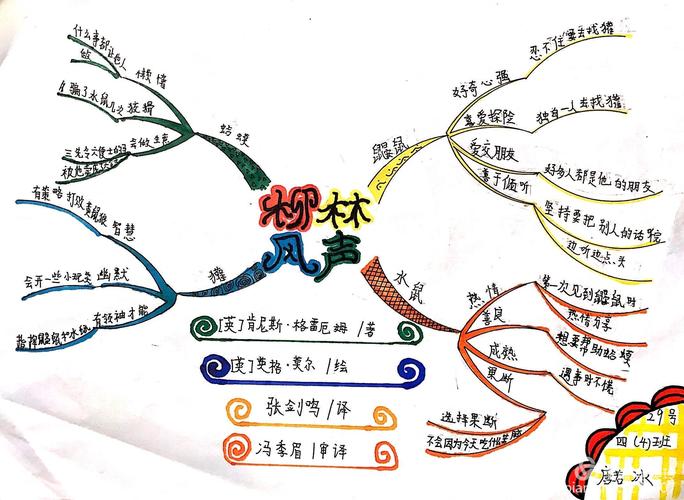 柳林
风声
蛤蟆
懒惰
什么事都让别人
做
狡猾
骗了水鼠几次
会做生意
獾
智慧
有策略打败黄鼠狼
幽默
会开一些小玩笑
有领袖才能
指挥鼹鼠和水鼠
鼹鼠
好奇心强
忍不住要去找獾
喜爱探险
独自一人去找獾
爱交朋友
好多人都是他的朋友
善于倾听
坚持要把别人的话听完
边听边点头
水鼠
热情
第一次见到鼹鼠时
热情分享
善良
想要帮助蛤蟆
成熟
遇事时不慌
果断
选择果断
[英]肯尼斯·格雷厄姆/著
[英]英格·莫尔/绘
张剑鸣/译
冯季眉/审译
29号
四(4)班
唐若冰